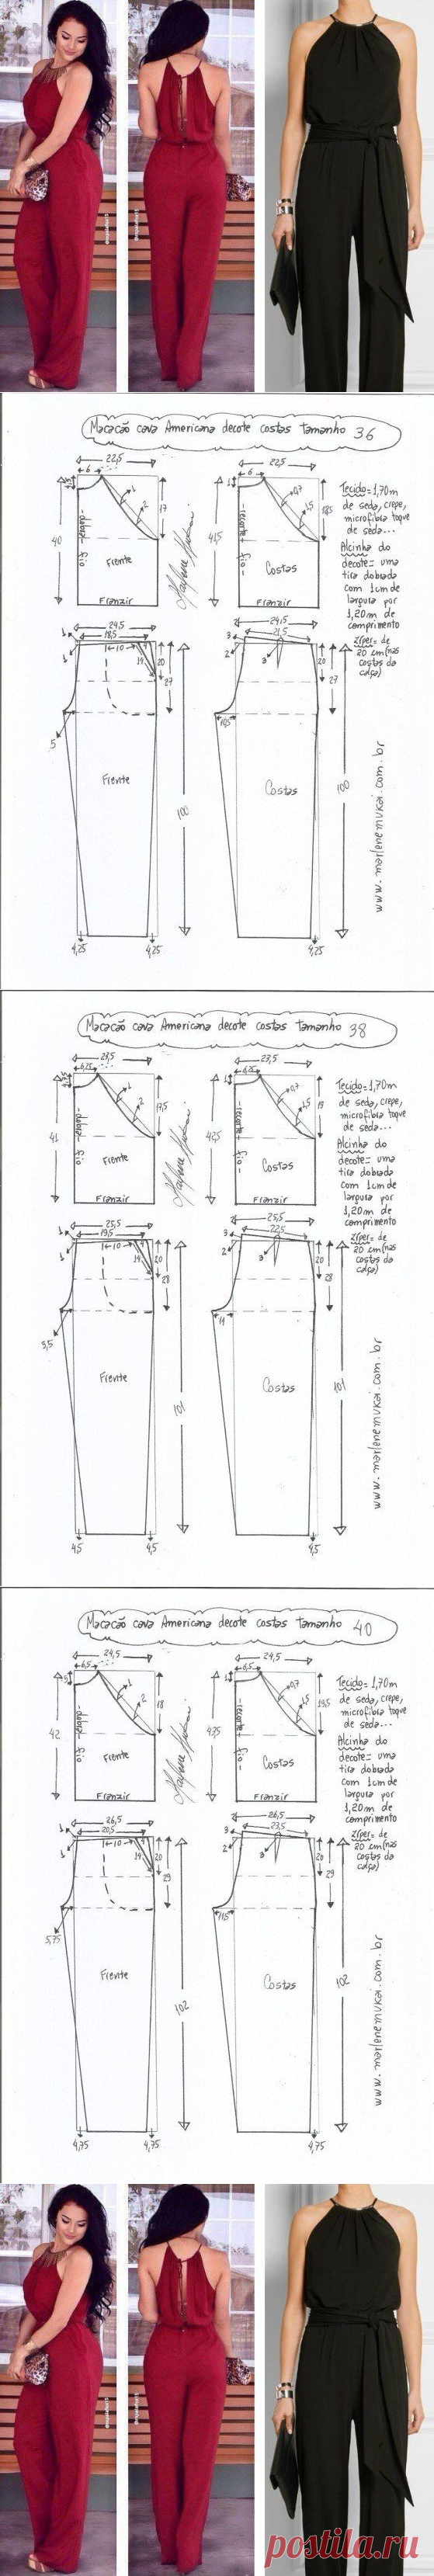 Macacão cava Americana decote costas tamanho 36
22,5
6
40
17
1
2
dobra
fio
Frente
Franzir
22,5
6
1
41,5
18,5
0,7
1,5
recorte
fio
Costas
Franzir
Tecido= 1,70m
de seda, crepe,
microfibra toque
de seda...
Alcinha do
decote= uma
tira dobrada
com 1cm de
largura por
1,20m de
comprimento
zíper= de
20 cm (nas
costas da
calça)
24,5
18,5
1
1
10
19
20
27
5
Frente
100
4,25
4,25
24,5
21,5
2
3
3
20
27
10,5
Costas
100
4,25
www.marlenemukai.com.br
Macacão cava Americana decote costas tamanho 38
23,5
6,25
41
17,5
1
2
dobra
fio
Frente
Franzir
23,5
6,25
1
42,5
19
0,7
1,5
recorte
fio
Costas
Franzir
Tecido= 1,70m
de seda, crepe,
microfibra toque
de seda...
Alcinha do
decote= uma
tira dobrada
com 1cm de
largura por
1,20m de
comprimento
zíper= de
20 cm (nas
costas da
calça)
25,5
19,5
1
1
10
19
20
28
5,5
Frente
101
4,5
4,5
25,5
22,5
3
2
3
20
28
11
Costas
101
4,5
www.marlenemukai.com.br
Macacão cava Americana decote costas tamanho 40
24,5
6,5
42
18
1
2
dobra
fio
Frente
Franzir
24,5
6,5
1
43,5
19,5
0,7
1,5
recorte
fio
Costas
Franzir
Tecido= 1,70m
de seda, crepe,
microfibra toque
de seda...
Alcinha do
decote= uma
tira dobrada
com 1cm de
largura por
1,20m de
comprimento
zíper= de
20 cm (nas
costas da
calça)
26,5
20,5
1
1
10
19
20
29
5,75
Frente
102
4,75
4,75
26,5
23,5
3
2
3
20
29
11,5
Costas
102
4,75
www.marlenemukai.com.br
postila.ru